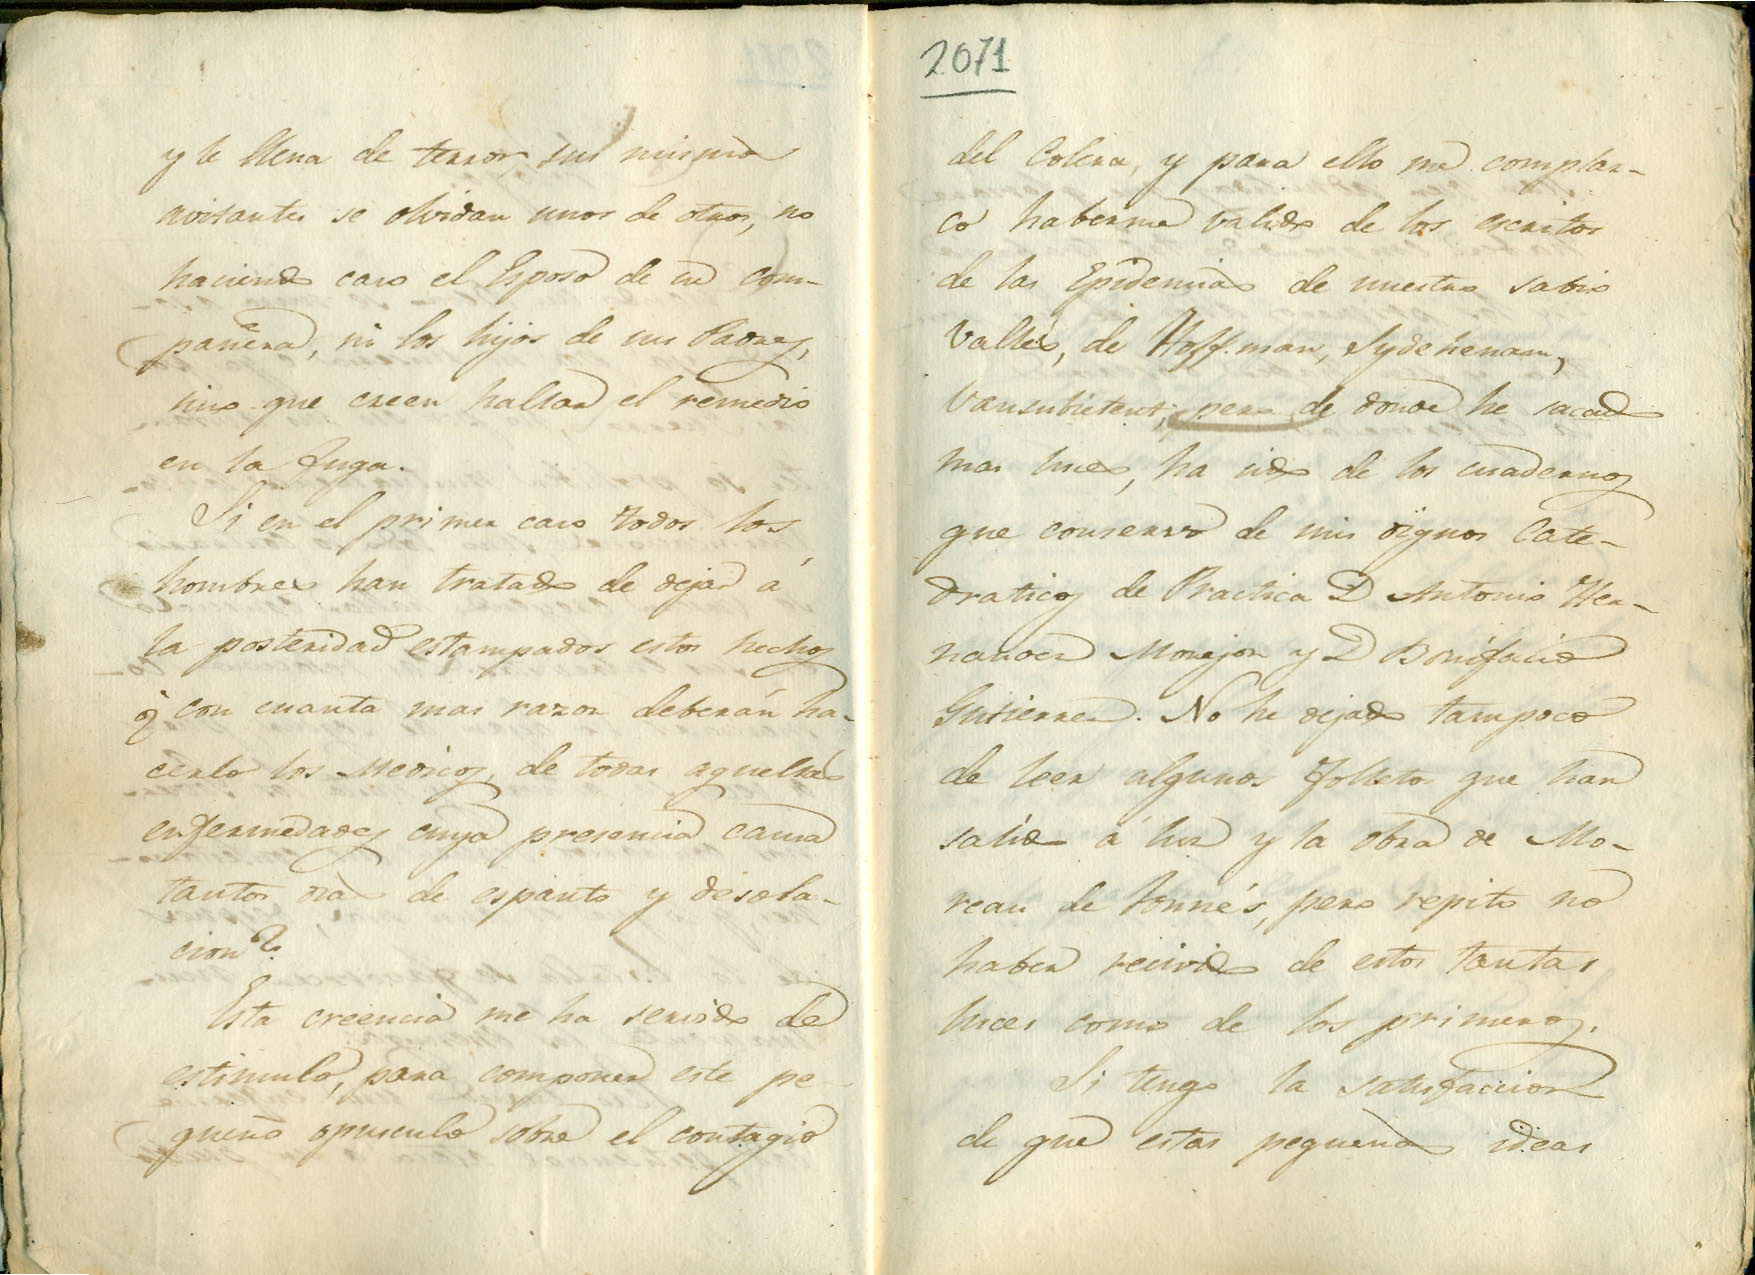 y le llena de terror, sus mismos
avitantes se olvidan unos de otros, no
haciendo caso el Esposo de su com-
pañera, ni los hijos de sus Padres,
sino que creen hallar el remedio
en la fuga.
Si en el primer caso todos los
hombres han tratado de dejar á
la posteridad estampados estos hechos
¿ con cuanta mas razon deberán ha-
cerlo los Medicos, de todas aquellas
enfermedades cuya presencia causa
tantos dias de espanto y desola-
cion?
Esta creencia me ha servido de
estimulo, para componer este pe-
queño opusculo sobre el contagio
2071
del Colera, y para ello me complaz-
co haberme valido de los escritos
de las Epidemias de nuestro sabio
Valles, de Hoffman, Sydehenam,
Vansubietent, pero de donde he sacado
mas luces, ha sido de los cuadernos
que conservo de mis dignos Cate-
draticos de Practica D Antonio Her-
nandez Morejon y D Bonifacio
Gutierrez. No he dejado tampoco
de leer algunos folletos que han
salido á luz y la obra de Mo-
reau de Jonnés, pero repito no
haber recivido de estos tantas
luces como de los primeros.
Si tengo la satisfaccion
de que estas pequeñas ideas